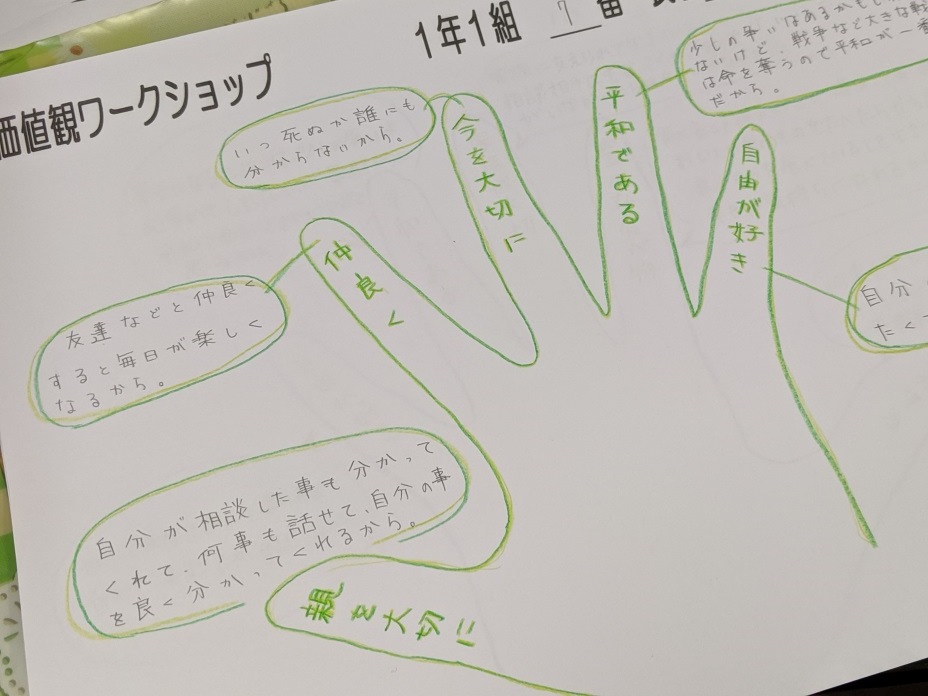 価値観ワークショップ
1年1組 7番
少しの争いはあるかもし
ないけど、戦争など大きな戦
は命を奪うので平和が一番
だから。
いつ死ぬか誰にも
分からないから。
今を大切に
平和である
自由が好き
自分
たく
仲良く
友達などと仲良く
すると毎日が楽しく
なるから。
自分が相談した事も分かって
くれて、何事も話せて、自分の事
を良く分かってくれるから。
親を大切に